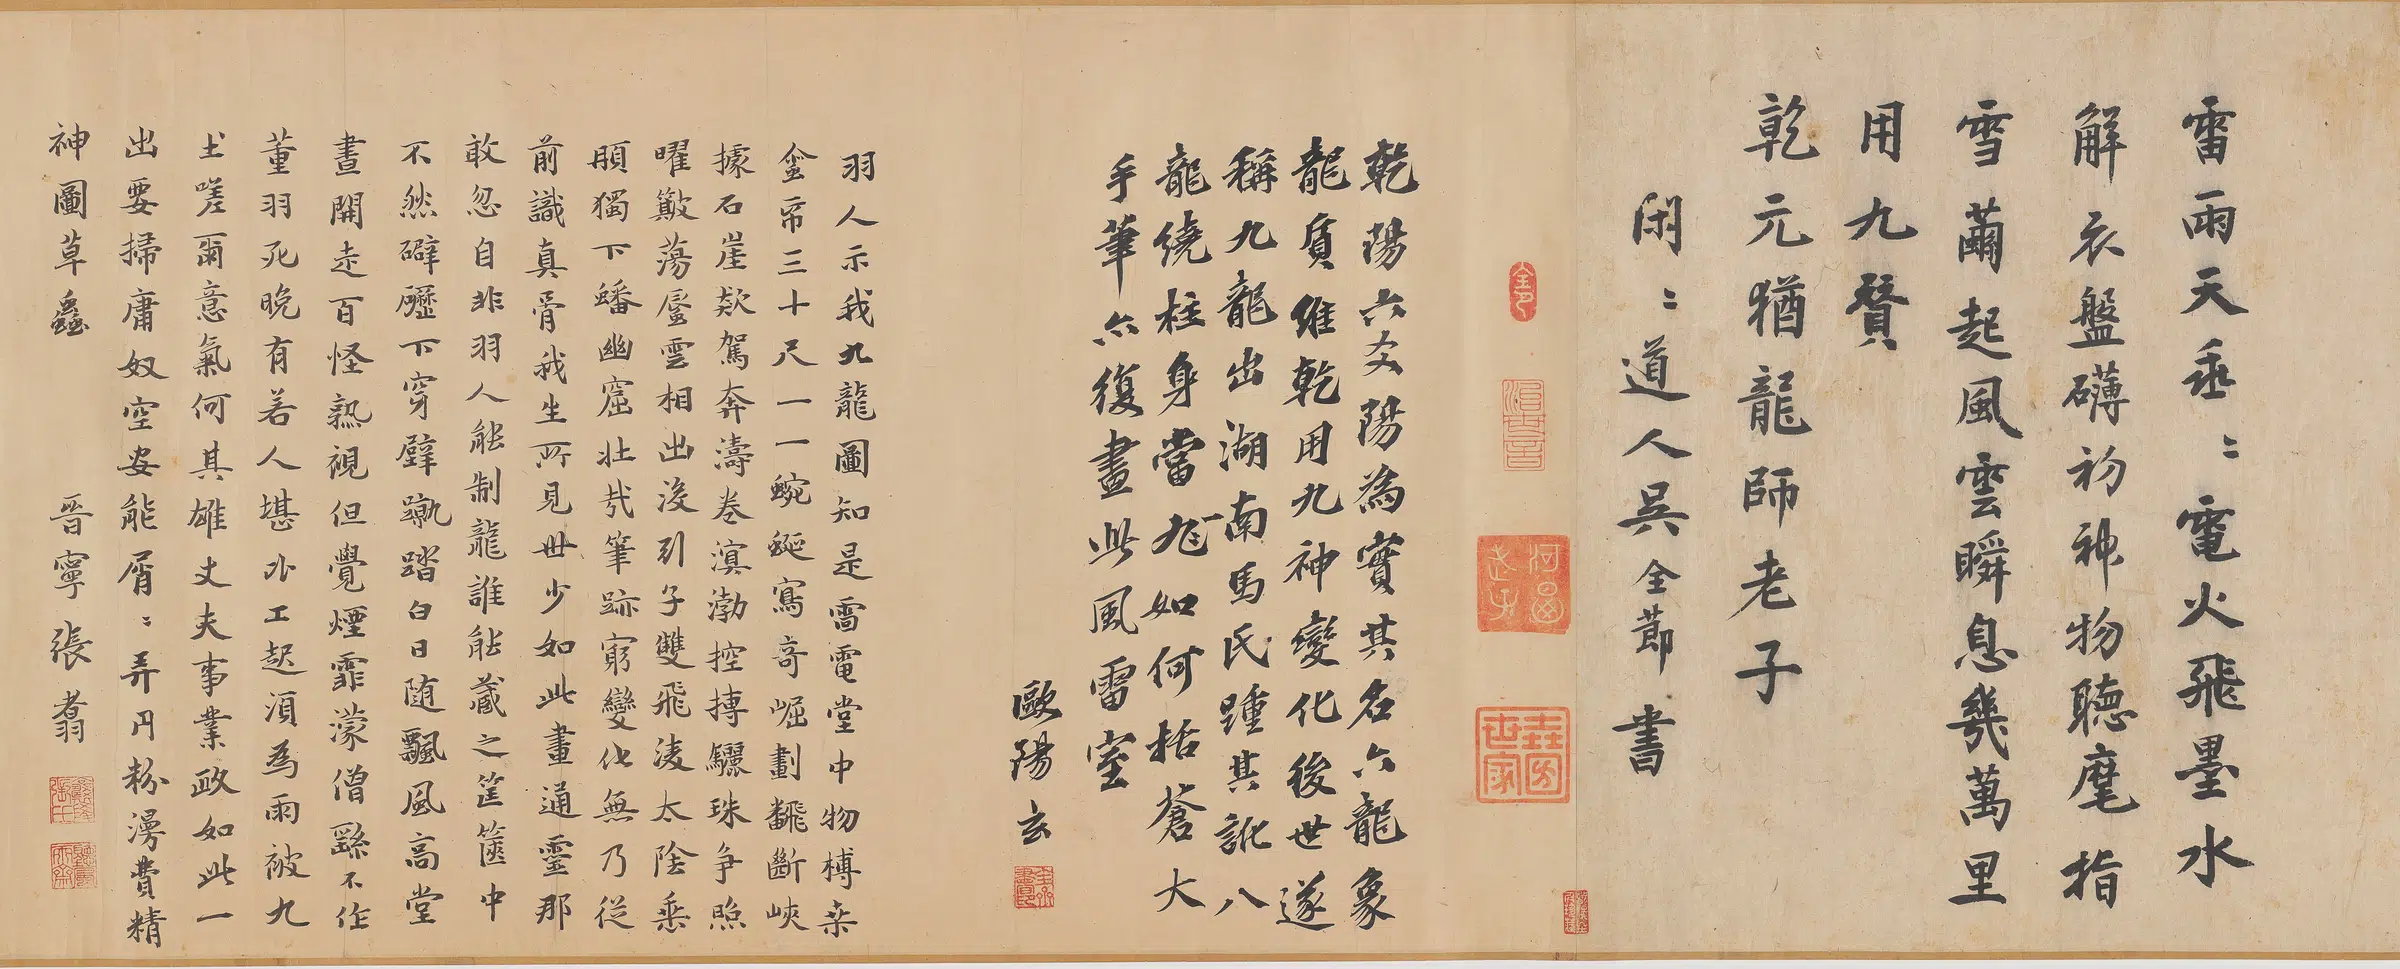 雷雨天垂〻電火飛墨水
解衣盤礴初神物聽麾指
雪繭起風雲瞬息幾萬里
用九贊
乾元猶龍師老子
閑〻道人吳全節書
乾陽六爻陽為實其名六龍象
龍質維乾用九神變化後世遂
稱九龍出湖南馬氏踵其訛八
龍繞柱身當九一如何括蒼大
手筆亦復畫此風雷室
歐陽玄
羽人示我九龍圖知是雷電堂中物槫桒
金帛三十尺一一蜿蜒寫奇崛劃翻斷峽
據石崖欻駕奔濤卷溟渤控摶驪珠爭照
曜簸蕩蜃雲相出沒引子雙飛淩太陰乘
頋獨下蟠幽窟壯㢤筆跡窮變化無乃從
前識真骨我生所見世少如此畫通靈那
敢忽自非羽人能制龍誰能蔵之筐篋中
不然礔礰下穿壁蹴踏白日随飄風高堂
晝開走百怪熟視但覺煙霏濛僧繇不作
董羽死晚有若人堪外工起湏為雨被九
土嗟爾意氣何其雄丈夫事業政如此一
出要掃庸奴空安能屑〻弄丹粉漫費精
神圖草蟲
晉寧張翥